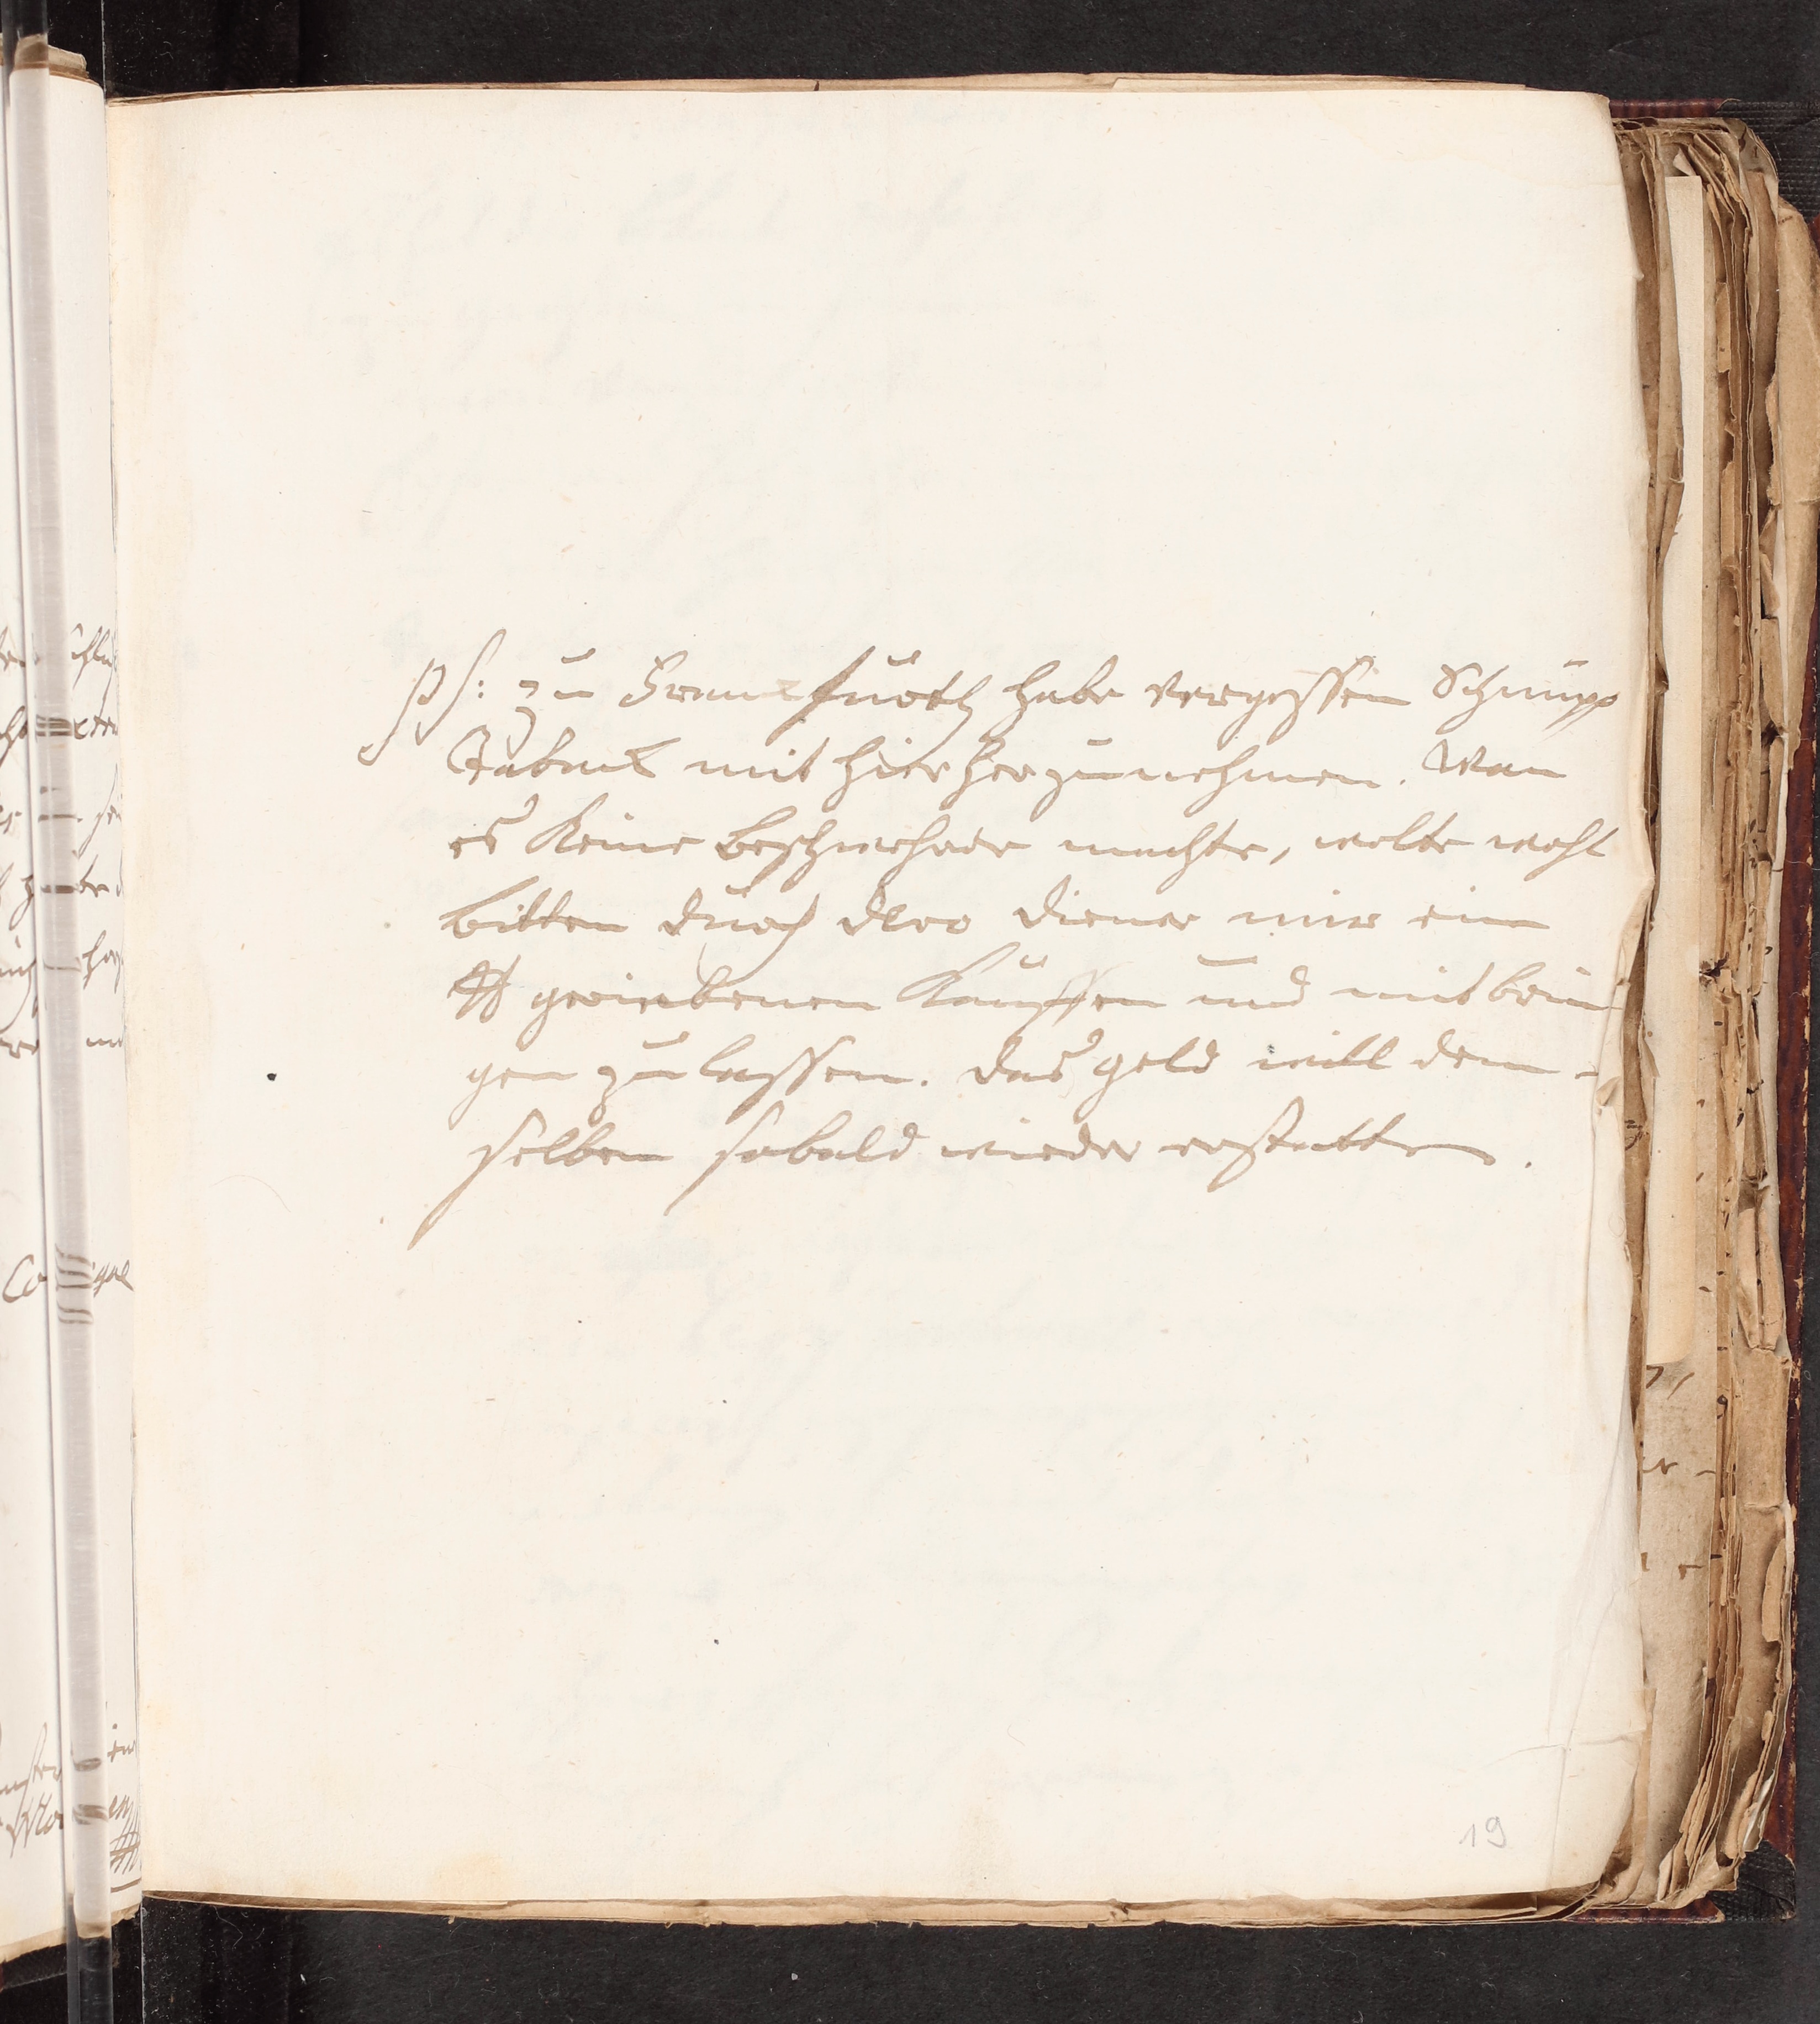 PS: zu Franckfurth habe vergessen Schnupp
Taback mit hierher zu nehmen. Wan
es keine beschwehrde machte, wolte wohl
bitten durch dero diener mir ein
℔ geriebenen kauffen und mit brin
gen zu lassen. das geld will dem-
selben sobald wieder erstatten.
19